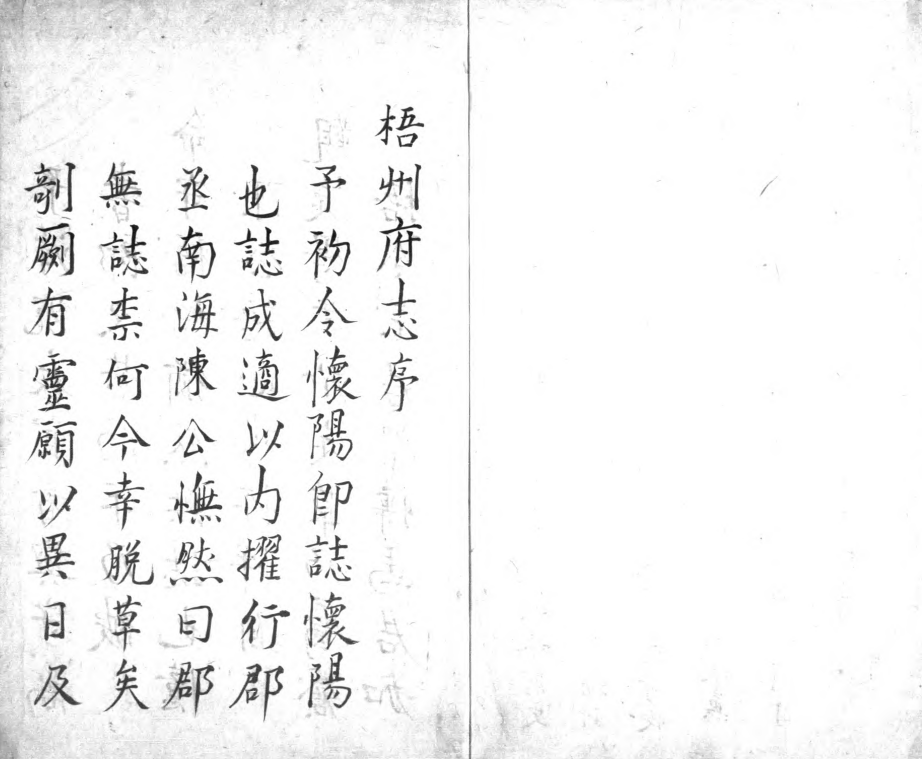 梧州府志序
予初令懷陽即誌懷陽
也誌成適以内擢行郡
丞南海陳公憮然曰郡
無誌柰何今幸脱草矣
剞劂有靈願以異日及